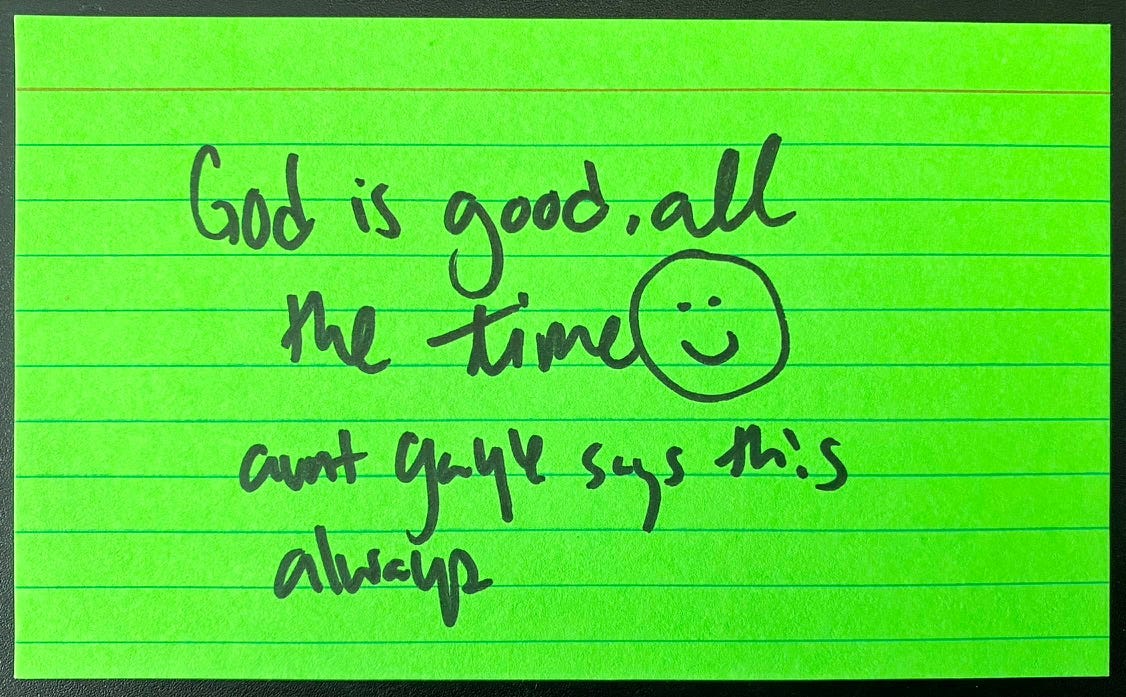 God is good, all
the time
aunt gayle says this
always